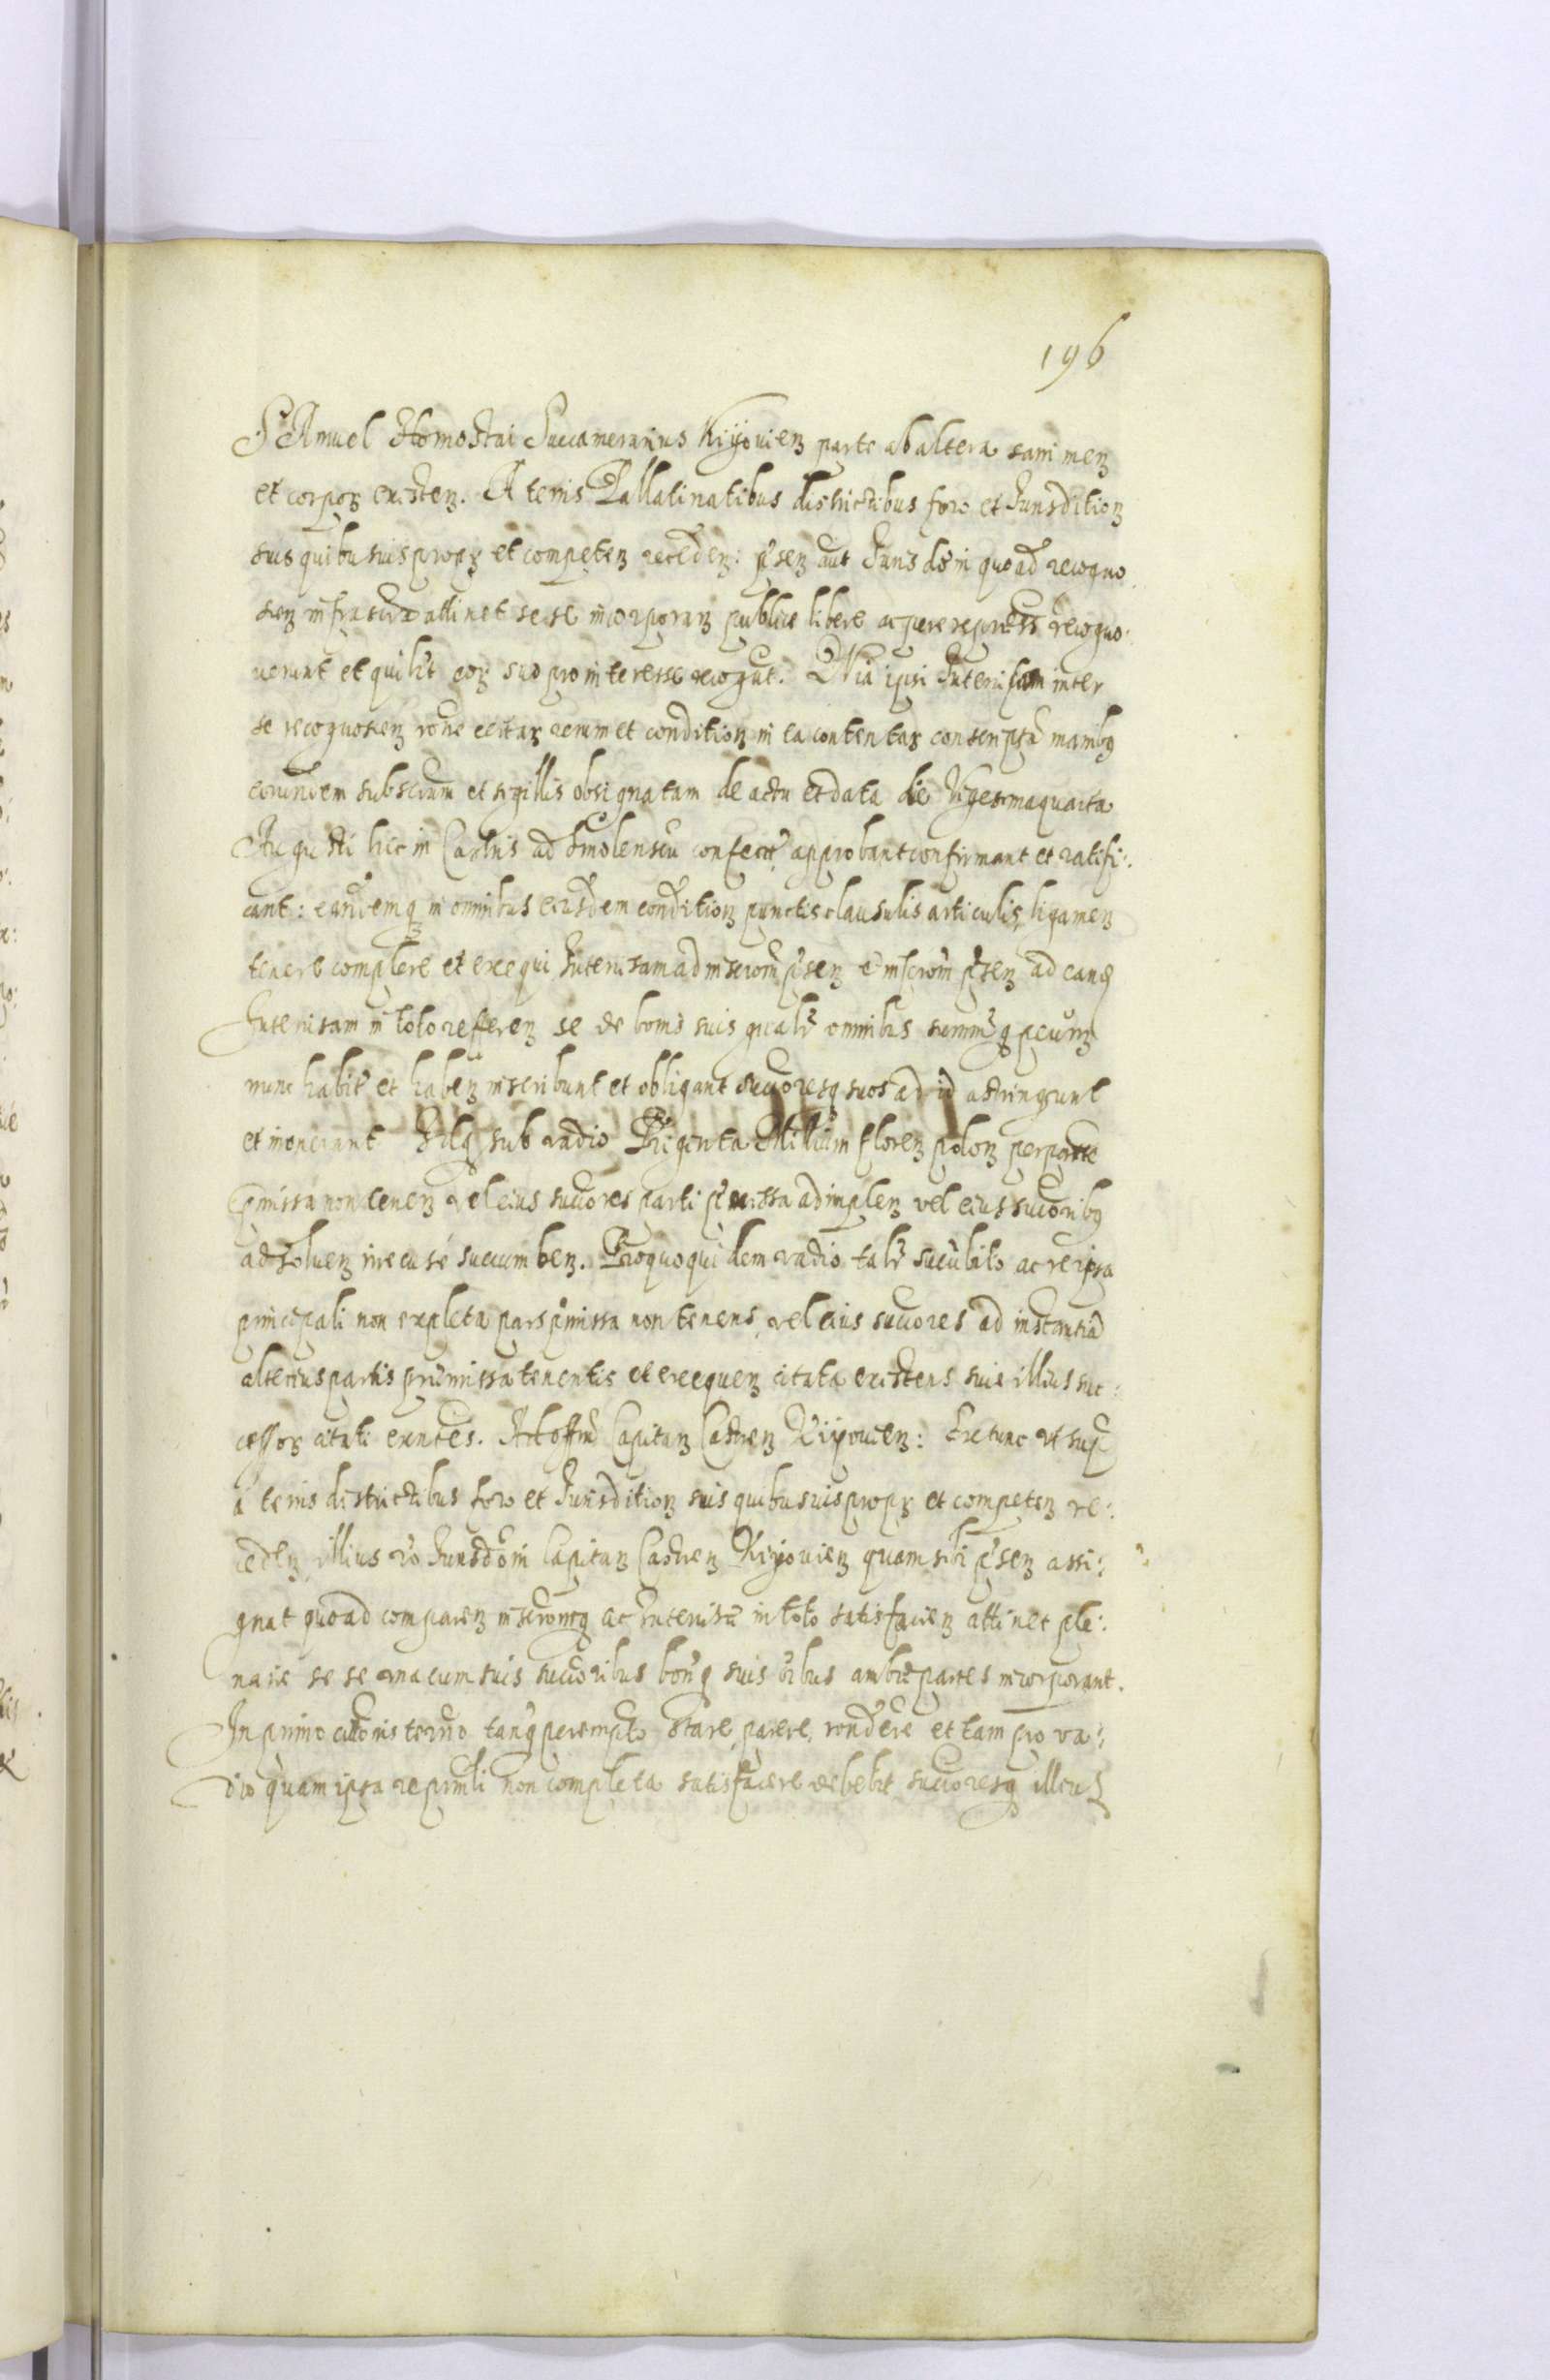 196
SAmuel Hornostai Succamerarius Kiyouien parte ab altera sani men
et corpor existen. A terris Pallatinatibus districtibus foro et Jurisdition
suis quibusuis propr et competen receden: pñsen aut Juris dōni quoad recogno
scen infrascr attinet sese incorporan publice libere ac per expresse recogno:
uerunt et quilt eor suo pro interesse recogūt. Quia ipsi Intercisam inter
se recognoscen rōne certar rerum et condition in ea contentar conscriptā manibq
eorundem subscrām et sigillis obsignatam de actu et data die Vigesimaquarta
Augusti hic in Castris ad Smolenscū confect approbant confirmant et ratifi:
cant: eandemq in omnibus eiusdem condition punctis clausulis articulis ligamen
tenere complere et exequi Intercisam ad inscrōm pñsen et inscrōm pñsen ad eand
Intercisam in toto referen se de bonis suis gñalr omnibus summisq pecun
nunc habit et haben inscribunt et obligant succoresq suos ad id astringunt
et inonerant Idq sub vadio Triginta Millium floren polon per partē
pmissa non tenen vel eius succores parti pmissa adimplen vel eius succoribq
adsoluen irrecusē succumben. Pro quo quidem vadio talr succubito ac re ipsa
principali non expleta pars pmissa non tenens vel eius succores ad instantiā
alterius partis prēmissa tenentis et exequen citata existens siue illius suc:
cessor citati exntes. Ad offm Capitan Castren Kiiouien: Extunc vt sup
à terris districtibus foro et Jurisdition suis quibusuis propr et competen re:
ceden illius vo Jurisdōni Capitan Castren Kiyouien quam sibi pñsen assi:
gnat quoad comparen inscrōnisq ac Intercisæ in toto satisfacien attinet ple:
narie se se vna cum suis succoribus bonisq suis oībus ambæ partes incorporant.
In primo citōnis termō tanq perempto stare, parere, rondēre et tam pro va:
dio quam ipsa re prinli non completa satisfacere debebit succoresq illius